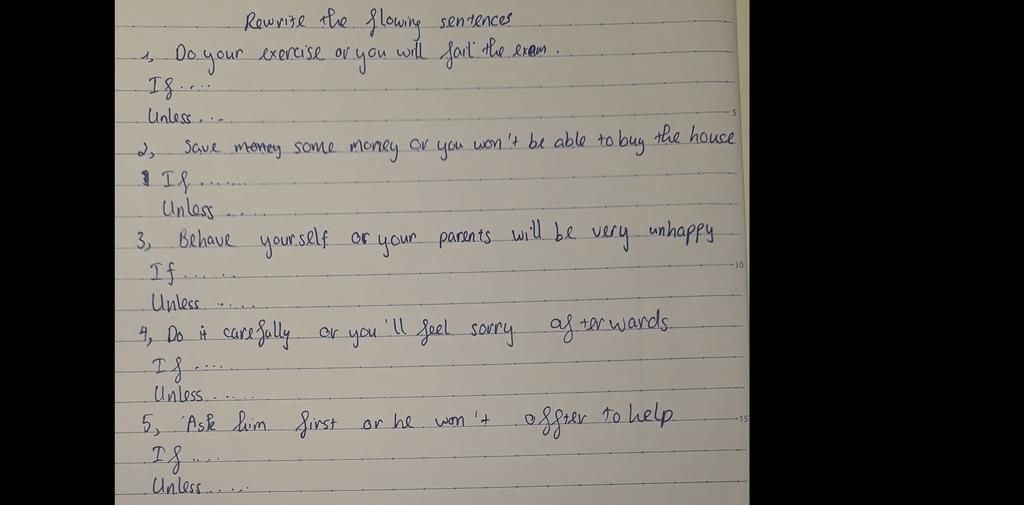 Rewrite the flowing sentences
1, Do your exercise or you will fail the exam.
If....
Unless...
2, Save money some money or you won't be able to buy the house
If.......
Unless.....
3, Behave yourself or your parents will be very unhappy
If......
Unless.....
4, Do it carefully or you'll feel sorry afterwards
If.....
Unless......
5, Ask him first or he won't offter to help
If....
Unless.....
5
10
15